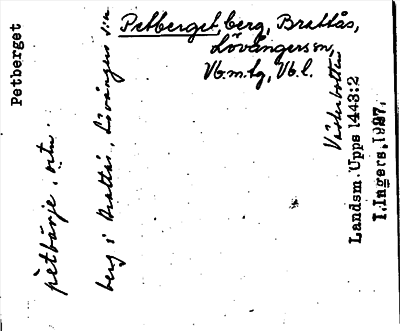 Petberget, berg, Brattås,
Lövångers sn,
Vb.m.tg, Vb.l.
Petberget
petbärje. ortn.
berg i Brattås, Lövångers sn
Västerbotten
Landsm. Upps 1443:2
I. Ingers, 1927.